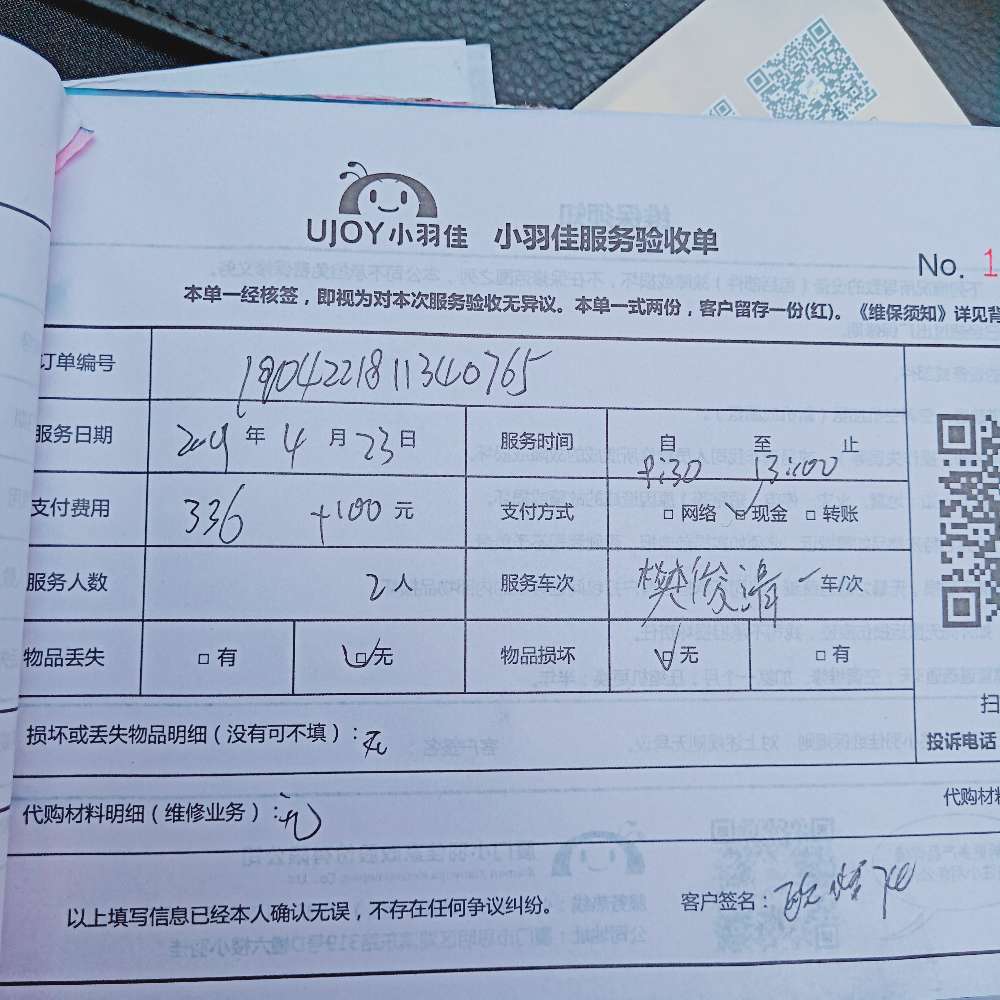 UJOY小羽佳 小羽佳服务验收单
No. 1
本单一经核签，即视为对本次服务验收无异议。本单一式两份，客户留存一份(红)。《维保须知》详见背
订单编号 190422181134 0765
服务日期 2019 年 4 月 23 日 服务时间 自 至 止
9:30 13:00
支付费用 336 +100 元 支付方式 □ 网络 □ 现金 □ 转账
服务人数 2 人 服务车次 樊俊 一 车/次
物品丢失 □ 有 □ 无 物品损坏 □ 无 □ 有
扫
损坏或丢失物品明细（没有可不填）：无
投诉电话
代购材料明细（维修业务）：无
代购材料
以上填写信息已经本人确认无误，不存在任何争议纠纷。 客户签名：